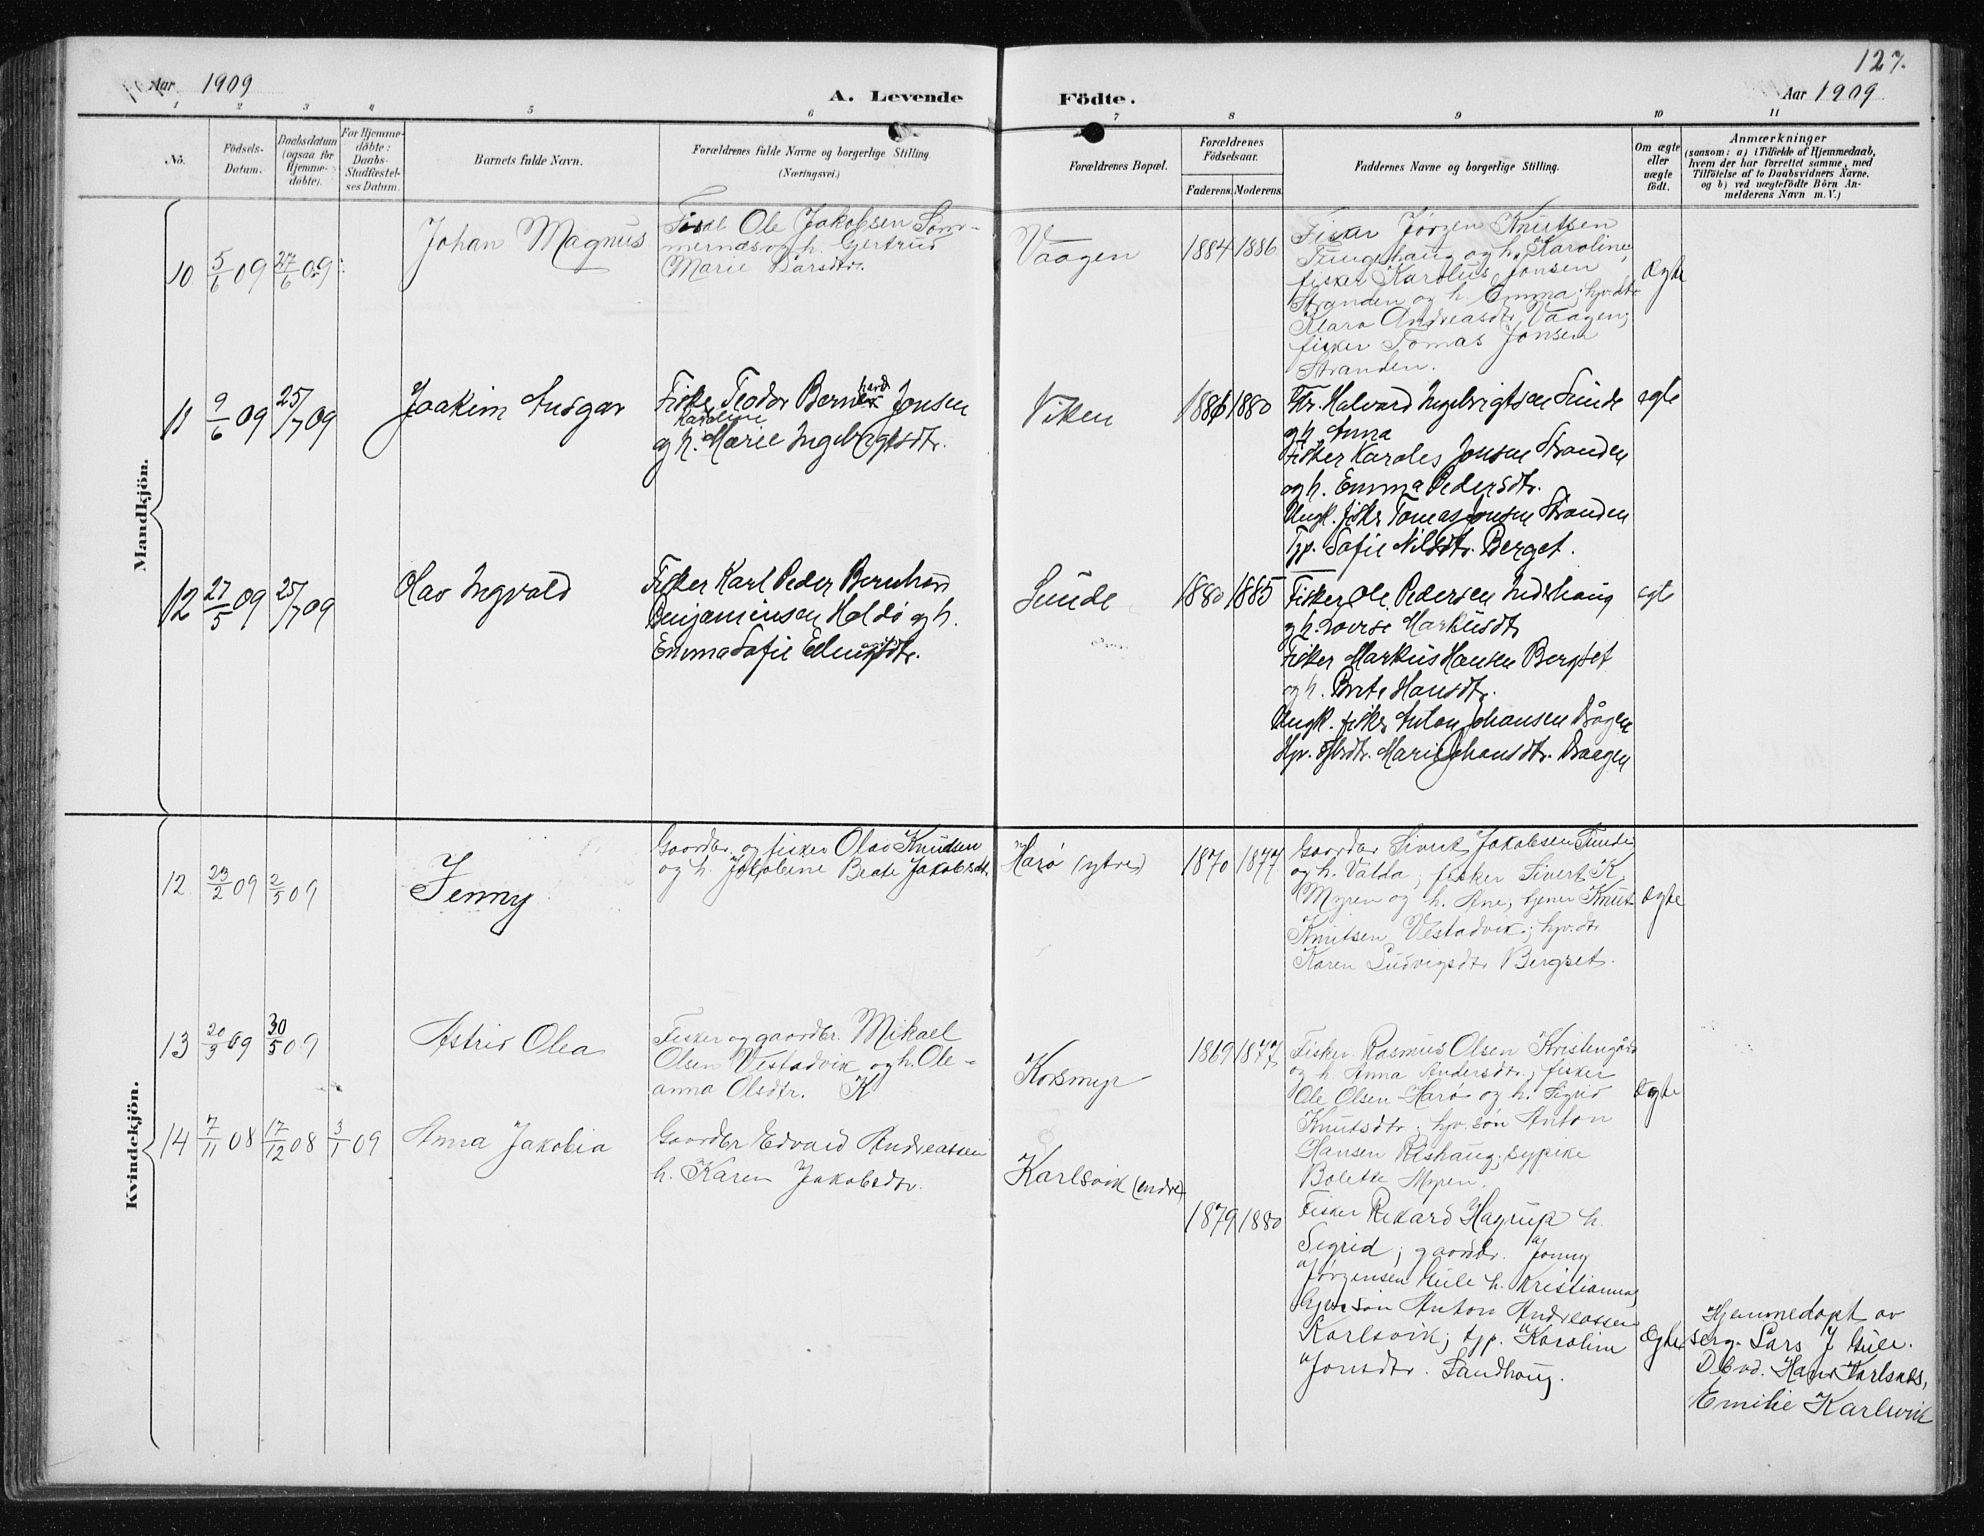 127.
Aar 1909
A. Levende Födte.
Aar 1909
1 2 3 4 5 6 7 8 9 10 11
No.
Födsels-
Datum.
Daabsdatum
(ogsaa for
Hjemme-
döbte).
For Hjemme-
döbte:
Daabs-
Stadfæstel-
ses Datum.
Barnets fulde Navn.
Forældrenes fulde Navne og borgerlige Stilling
(Næringsvei.)
Forældrenes Bopæl.
Forældrenes
Födselsaar.
Faderens. Moderens.
Faddernes Navne og borgerlige Stilling.
Om ægte
eller
uægte
födt.
Anmærkninger
(saasom: a) i Tilfælde af Hjemmedaab,
hvem der har forrettet samme, med
Tilföielse af to Daabsvidners Navne,
og b) ved uægtefödte Börn An-
melderens Navn m. V.)
Mandkjön.
10 5/6 09 27/6 09
Johan Magnus
Ole Jakobsen Som-
mernæs og h. Gertrud
Marie Larsdtr.
Vaagen
1884 1886
Fisker Jørgen Knutsen
Tungehaug og h. Karoline;
fisker Karolus Jonsen
Stranden og h. Emma; hjv. dtr
Klara Andreasdtr Vaagen;
fisker Tomas Jonsen
Stranden.
Ægte
11 9/6 09 25/7 09
Joakim Ansgar
Fisker Teodor Bernhard Jonsen
Karoline
og h. Marie Ingebrigtsdtr.
Viken
1886 1880
Fkr. Halvard Ingebrigtsen Sunde
og h. Anna
Fisker Karoles Jonsen Stranden
og h. Emma Pedersdtr.
Ungk. fisker Tomas Jonsen Stranden
Tjp. Sofie Nilsdtr. Berget.
egte
12 27/5 09 25/7 09
Olav Ingvald
Fisker Karl Peder Bernhard
Benjaminsen Holdö og h.
Emma Sofie
Sunde
1880 1885
Fisker Ole Pedersen Inderhaug
og h. Lovise Markusdtr
Fisker Markus Hansen Bergset
og h. Brite Hansdtr.
Ungk. fisker Anton Johansen Vågen
Hjv. Marie Johansdtr. Vaagen
egte
Kvindekjön.
12 23/2 09 2/5 09
Jenny
Gaardbr. og fisker Olav Knudsen
og h. Jakobine Beate Jakobsdtr.
Harø (ytre)
1870 1877
Gaardbr Sivert Jakobsen Sunde
og h. Valda; fisker Sivert K.
Myren og h. Ane; tjener Knut
Knutsen Vestadvik; hjv. dtr
Karen Ludvigsdtr Bergset.
Ægte
13 20/3 09 30/5 09
Astrid Olea
Fisker og gaardbr. Mikael
Olsen Vestadvik og h. Ole-
anna Olsdtr. K
Korsmyr
1869 1877
Fisker Rasmus Olsen Kristengård
og h. Anna Andersdtr.; fisker
Ole Olsen Harø og h. Sigrid
Knutsdtr; hjv. søn Anton
Hansen Rishaug; sypike
Bolette Myren.
Ægte
14 7/11 08 17/12 08 3/1 09
Anna Jakobia
Gaardbr Edvard Andreassen
h. Karen Jakobsdtr.
Karlsvik (indre)
1879 1880
Fisker Rikard Hagrup h.
Sigrid; gaardbr. Jonny
Jørgensen Gule h. Kristianna;
søn Anton Andreassen
Karlsvik; tjp. Karoline
Jonsdtr. Sandhaug.
Ægte
Hjemmedøpt av
serg. Lars J Gule.
Dbvd. Hans Karlsnes,
Emilie Karlsvik